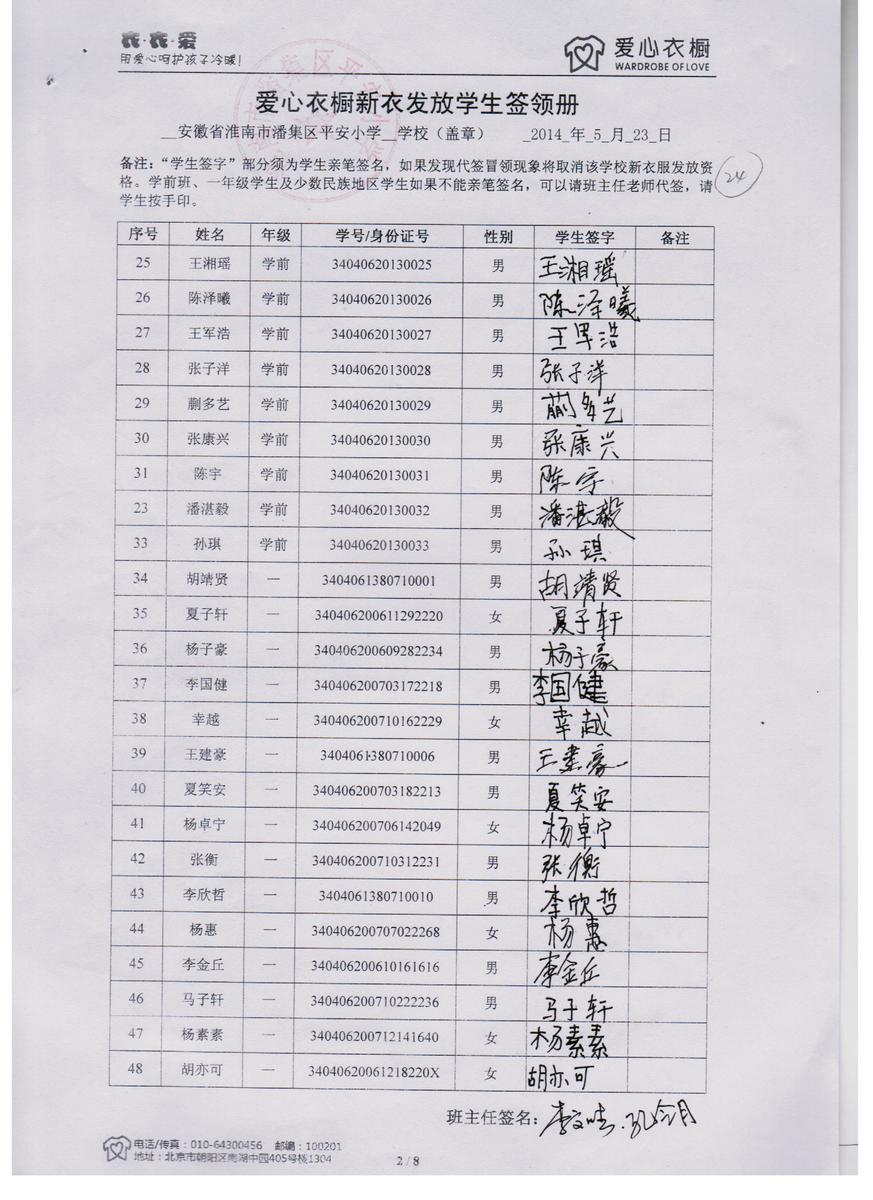 衣·衣·爱
用爱心呵护孩子冷暖!
爱心衣橱
WARDROBE OF LOVE
爱心衣橱新衣发放学生签领册
__安徽省淮南市潘集区平安小学__学校（盖章） _2014_年_5_月_23_日
备注:“学生签字”部分须为学生亲笔签名，如果发现代签冒领现象将取消该学校新衣服发放资
格。学前班、一年级学生及少数民族地区学生如果不能亲笔签名，可以请班主任老师代签，请
学生按手印。
24
序号 姓名 年级 学号/身份证号 性别 学生签字 备注
25 王湘瑶 学前 34040620130025 男 王湘瑶
26 陈泽曦 学前 34040620130026 男 陈泽曦
27 王军浩 学前 34040620130027 男 王军浩
28 张子洋 学前 34040620130028 男 张子洋
29 蒯多艺 学前 34040620130029 男 蒯多艺
30 张康兴 学前 34040620130030 男 张康兴
31 陈宇 学前 34040620130031 男 陈宇
23 潘湛毅 学前 34040620130032 男 潘湛毅
33 孙琪 学前 34040620130033 男 孙琪
34 胡靖贤 一 3404061380710001 男 胡靖贤
35 夏子轩 一 340406200611292220 女 夏子轩
36 杨子豪 一 340406200609282234 男 杨子豪
37 李国健 一 340406200703172218 男 李国健
38 幸越 一 340406200710162229 女 幸越
39 王建豪 一 3404061380710006 男 王建豪
40 夏笑安 一 340406200703182213 男 夏笑安
41 杨卓宁 一 340406200706142049 女 杨卓宁
42 张衡 一 340406200710312231 男 张衡
43 李欣哲 一 3404061380710010 男 李欣哲
44 杨惠 一 340406200707022268 女 杨惠
45 李金丘 一 340406200610161616 男 李金丘
46 马子轩 一 340406200710222236 男 马子轩
47 杨素素 一 340406200712141640 女 杨素素
48 胡亦可 一 34040620061218220X 女 胡亦可
班主任签名:
电话/传真：010-64300456 邮编：100201
地址：北京市朝阳区南湖中园405号楼1304
2 / 8